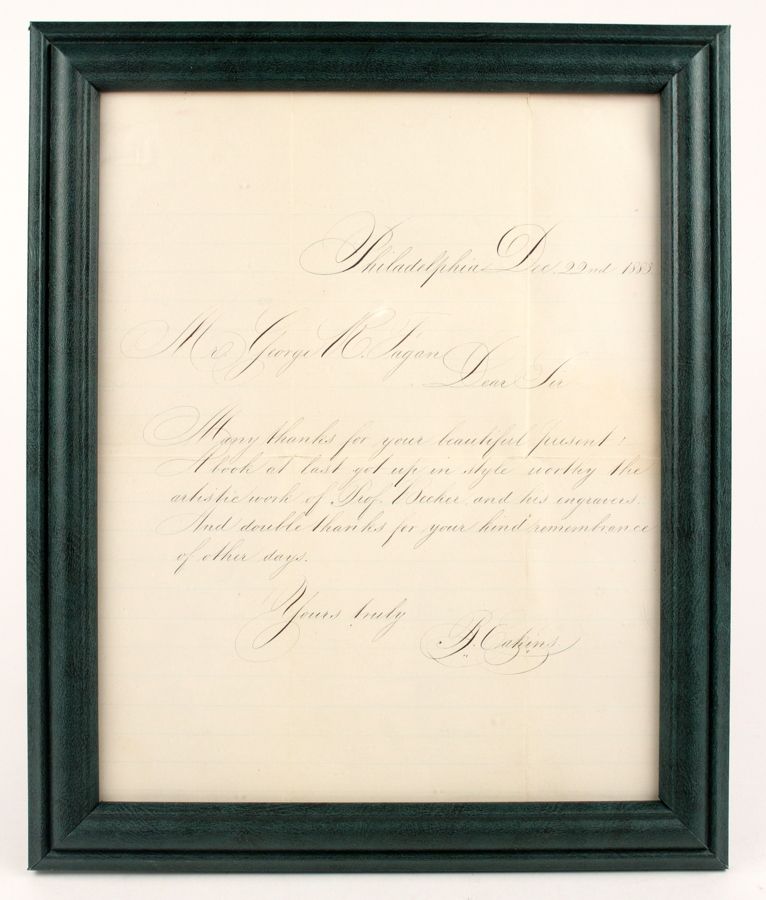 Philadelphia Dec. 22nd 1883
Mr. George R. Fagan
Dear Sir
Many thanks for your beautiful present!
A book at last got up in style worthy the
artistic work of Prof. Becker and his engravers.
And double thanks for your kind remembrance
of other days.
Yours truly
B. Eakins